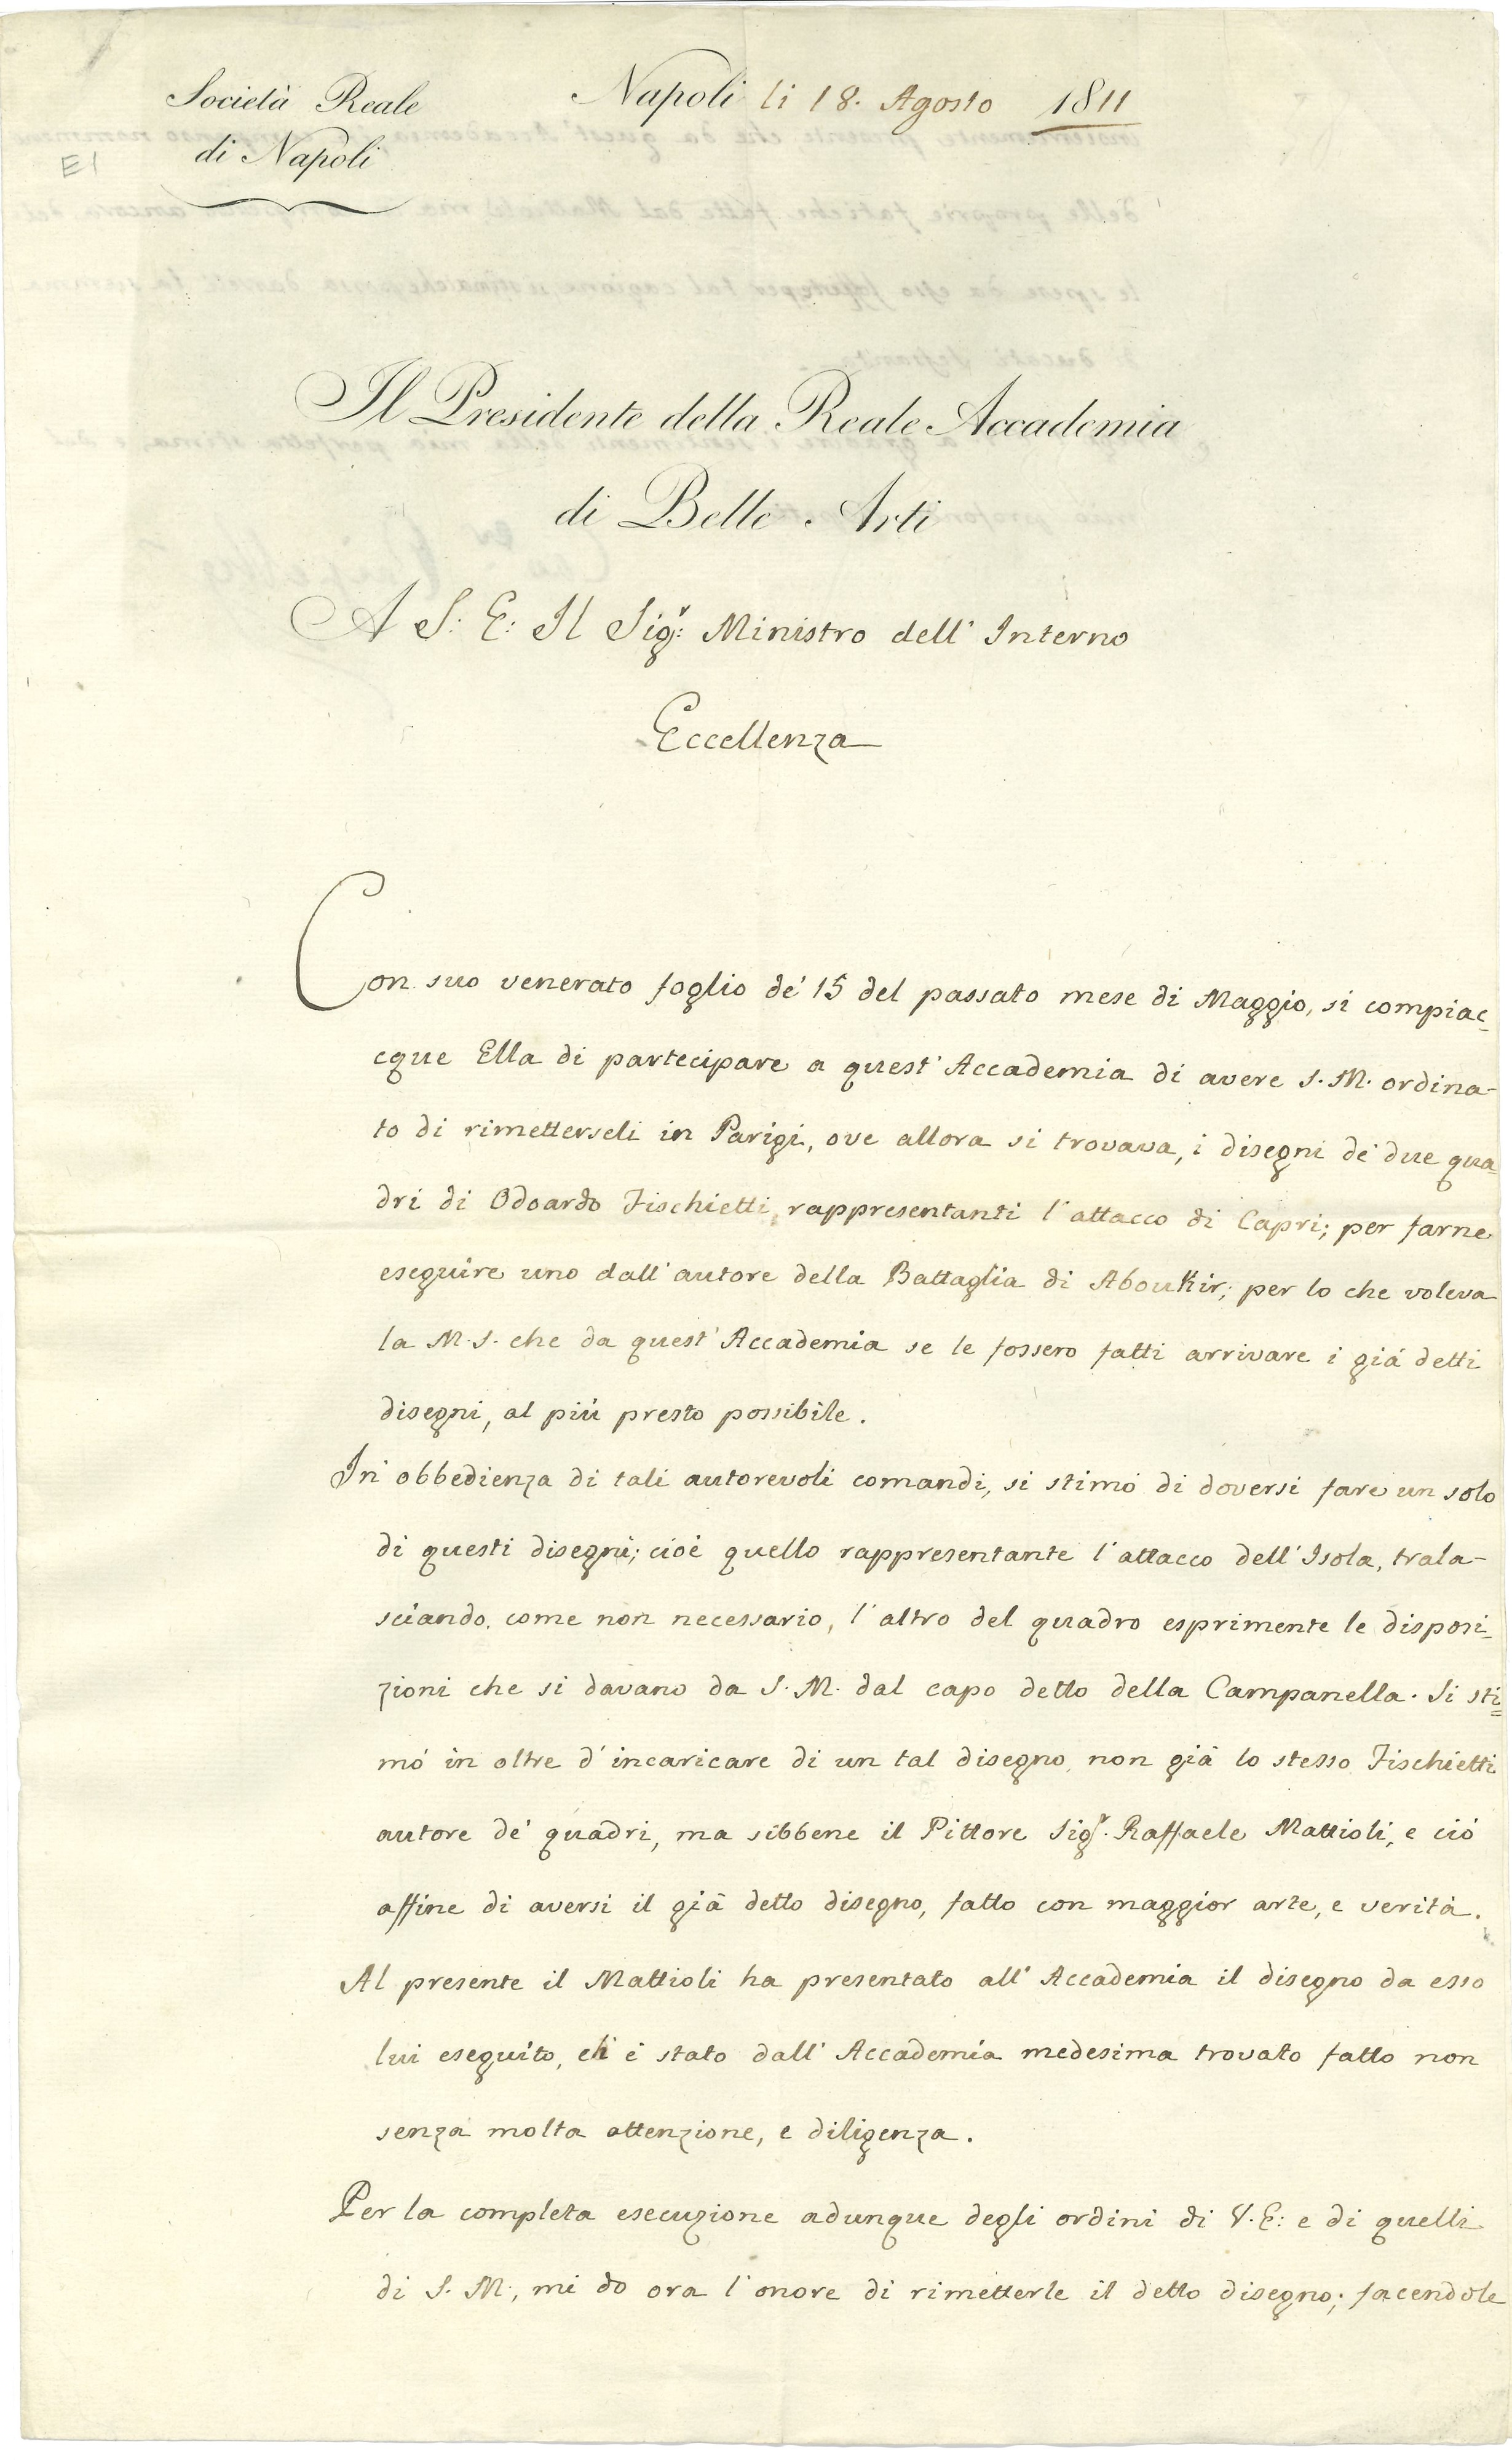 Società Reale
di Napoli
Napoli li 18. Agosto 1811
E1
Il Presidente della Reale Accademia
di Belle Arti
A S: E: Il Sigr: Ministro dell' Interno
Eccellenza
Con suo venerato foglio de' 15 del passato mese di Maggio, si compiac=
cque Ella di partecipare a quest' Accademia di avere S. M. ordina-
to di rimetterseli in Parigi, ove allora si trovava, i disegni de' due qua=
dri di Odoardo Fischietti, rappresentanti l'attacco di Capri; per farne
eseguire uno dall'autore della Battaglia di Aboukir; per lo che voleva
la M. S. che da quest' Accademia se le fossero fatti arrivare i già detti
disegni, al più presto possibile.
In obbedienza di tali autorevoli comandi, si stimò di doversi fare un solo
di questi disegni; cioè quello rappresentante l'attacco dell' Isola, trala-
sciando, come non necessario, l'altro del quadro esprimente le disposi=
zioni che si davano da S. M. dal capo detto della Campanella. Si sti=
mò in oltre d'incaricare di un tal disegno, non già lo stesso Fischietti
autore de' quadri, ma sibbene il Pittore Sigr. Raffaele Mattioli, e ciò
affine di aversi il già detto disegno, fatto con maggior arte, e verità.
Al presente il Mattioli ha presentato all' Accademia il disegno da esso
lui eseguito, ed è stato dall' Accademia medesima trovato fatto non
senza molta attenzione, e diligenza.
Per la completa esecuzione adunque degli ordini di V. E: e di quelli
di S. M., mi do ora l'onore di rimetterle il detto disegno; facendole